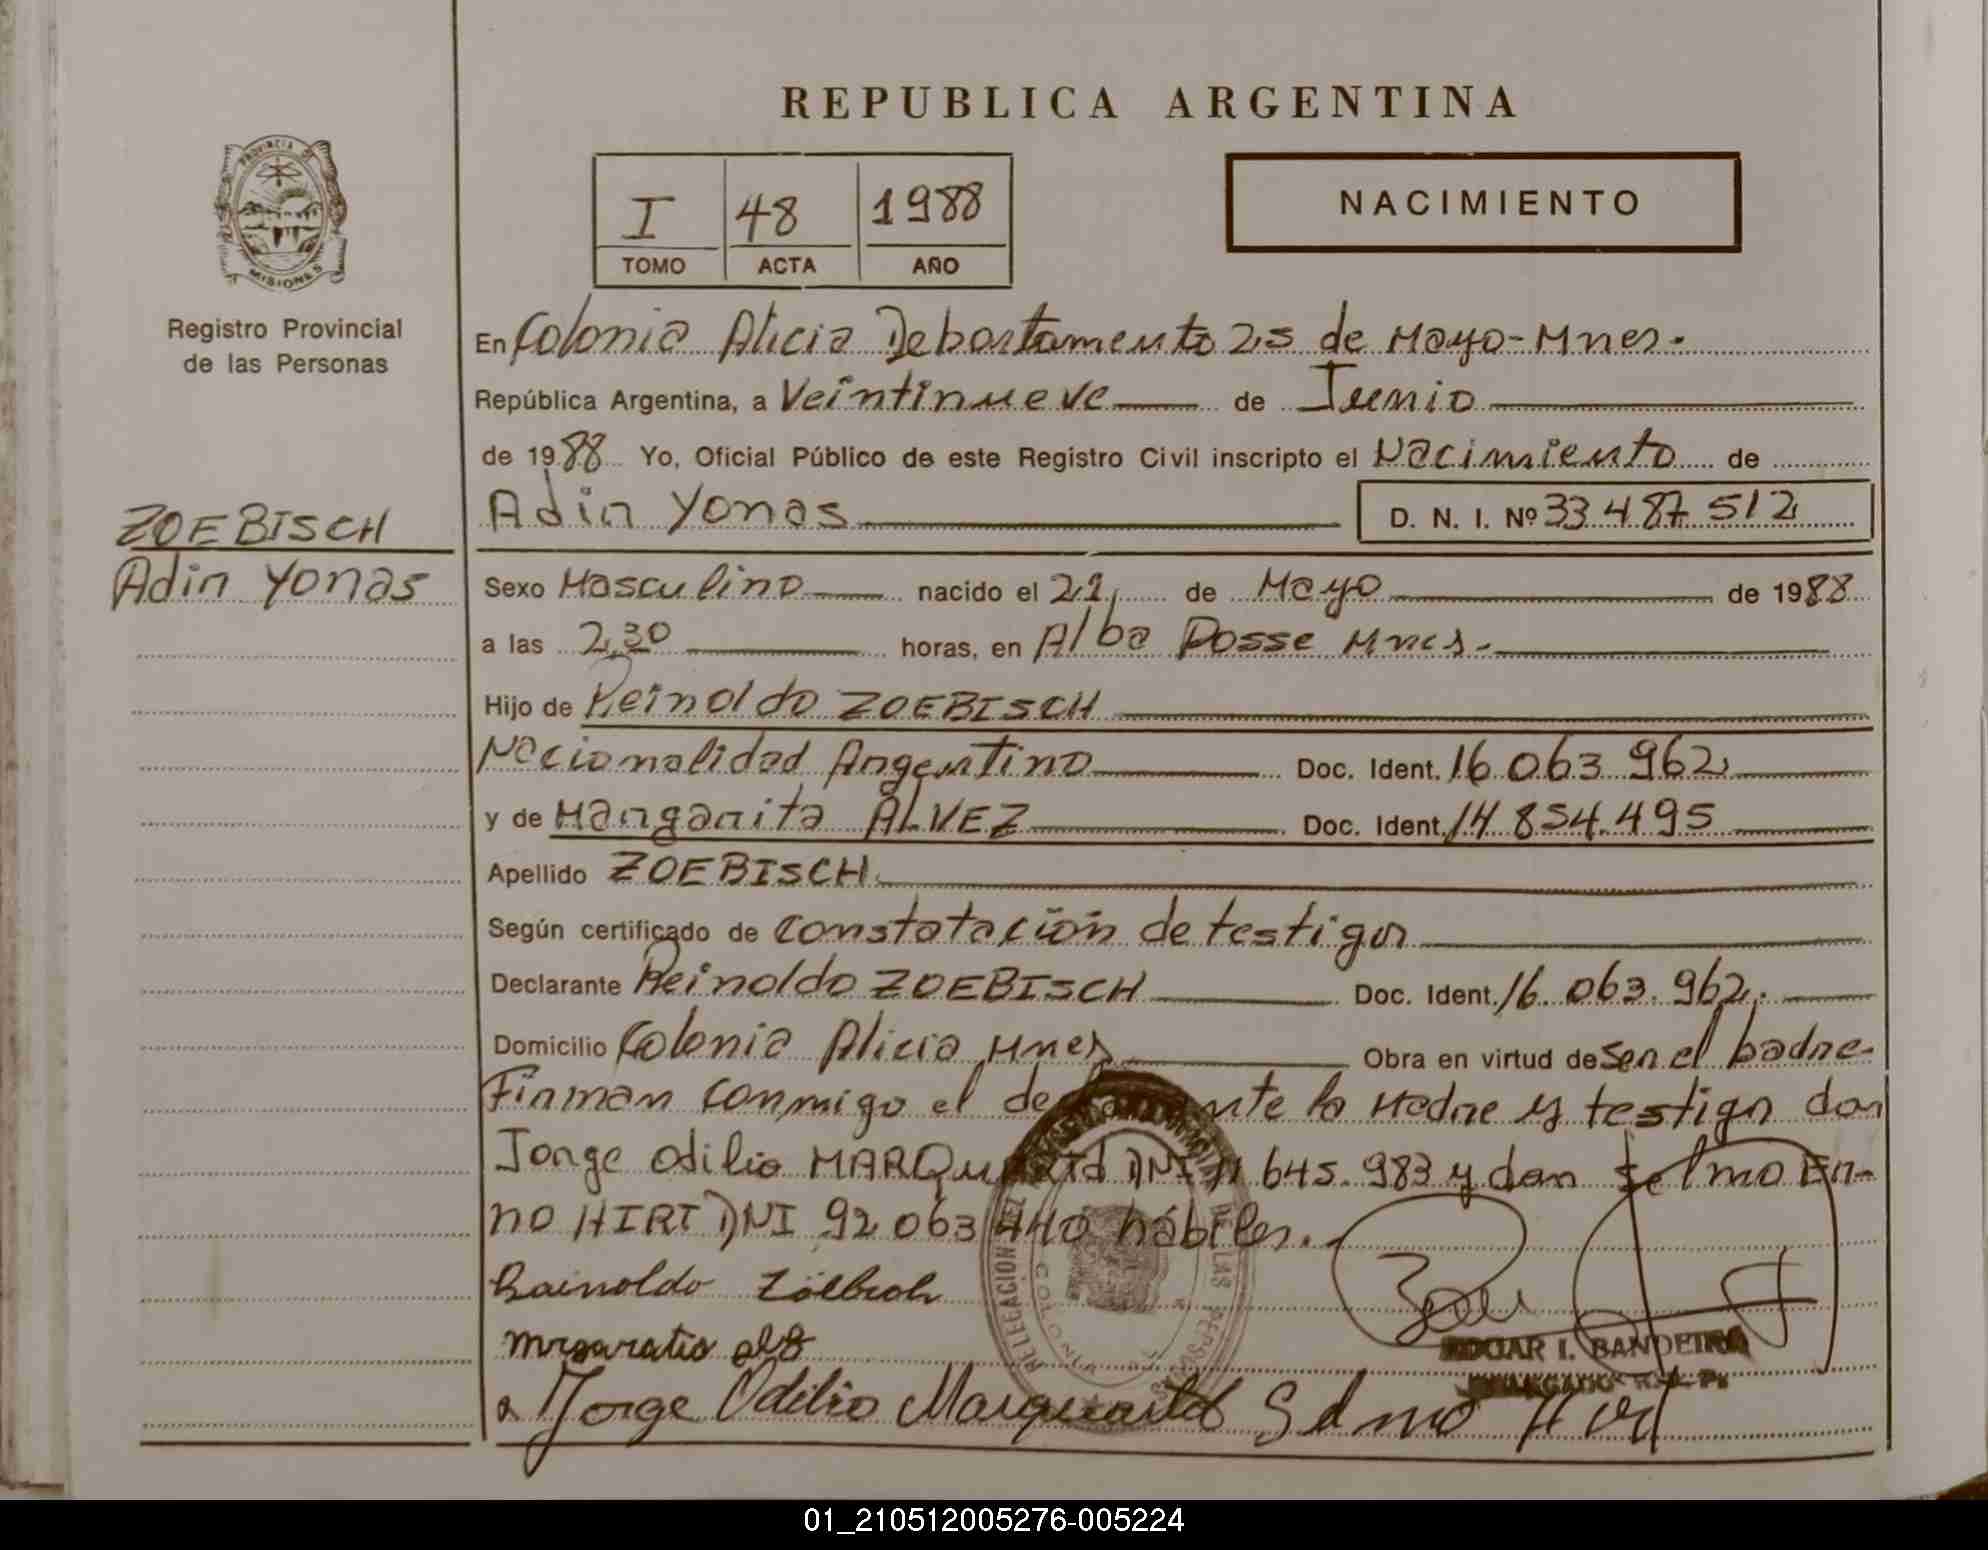 REPUBLICA ARGENTINA
PROVINCIA DE
MISIONES
Registro Provincial
de las Personas
I 48 1988
TOMO ACTA AÑO
NACIMIENTO
En Colonia Alicia Debartamento 25 de Mayo-Mnes.
República Argentina, a Veintinueve de Junio
de 1988 Yo, Oficial Público de este Registro Civil inscripto el Nacimiento de
Adin Yonas D. N. I. Nº 33 487 512
ZOEBISCH
Adin Yonas
Sexo Masculino nacido el 21 de Mayo de 1988
a las 2,30 horas, en Alba Posse Mnes.
Hijo de Reinoldo ZOEBISCH
Nacionalidad Argentino Doc. Ident. 16 063 962
y de Margarita ALVEZ Doc. Ident. 14 854.495
Apellido ZOEBISCH
Según certificado de constatación de testigos
Declarante Reinoldo ZOEBISCH Doc. Ident. 16.063.962.
Domicilio Colonia Alicia Mnes Obra en virtud de ser el badre
Firman conmigo el declarante la Madre y testigos don
Jorge Odilio MARQuARTd DNI 11 645.983 y don Selmo En-
no HIRT DNI 92 063 440 hábiles.
Rainoldo
Jorge Odilio Marquardt Selmo Hirt
EDGAR I. BANDEIRA
01_210512005276-005224